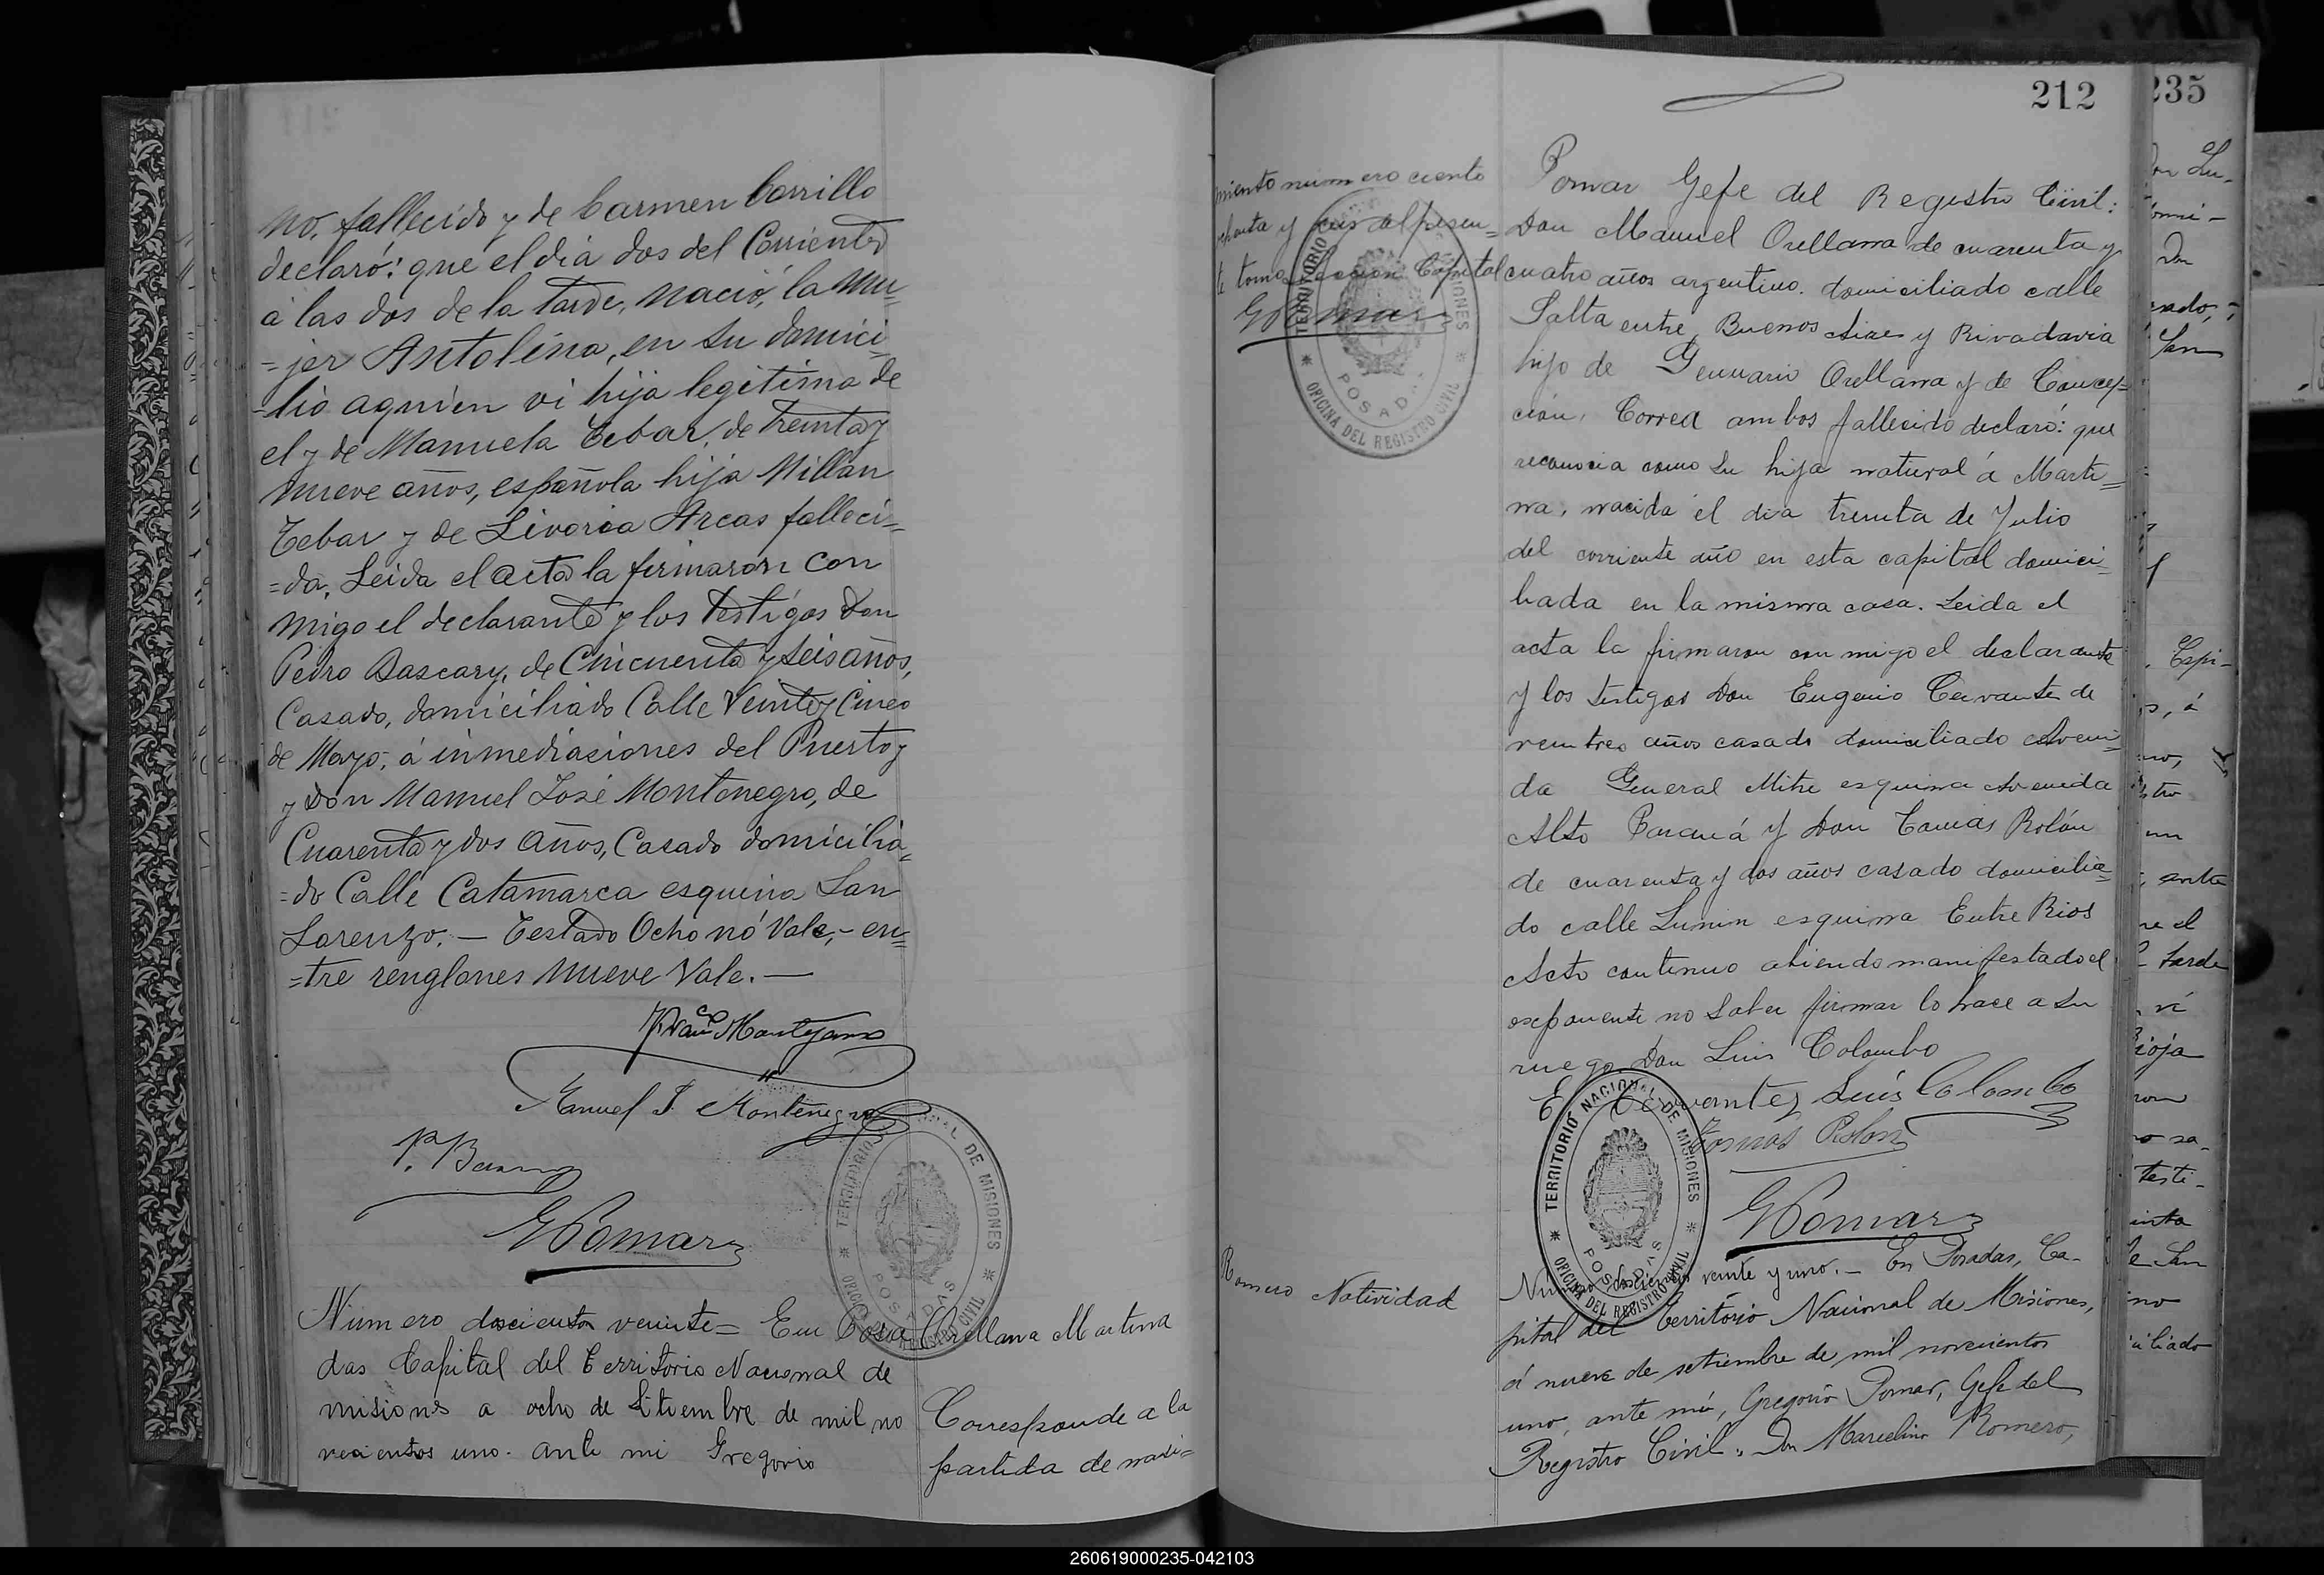 no, fallecido y de Carmen Carrillo
declaró: que el dia dos del Corriente
á las dos de la tarde, nació, la mu=
=jer Antolina, en su domici=
=lio aquien vi hija legitima de
el y de Manuela Tebar, de treinta y
nueve años, española hija Millan
Tebar y de Livoria Arcas falleci=
=da, Leida el acta la firmaron con
migo el declarante y los testigos Don
Pedro Bascary, de Cincuenta y seis años,
Casado, domiciliado Calle Veinte y Cinco
de Mayo, á inmediaciones del Puerto y
y Don Manuel José Montenegro, de
Cuarenta y dos años, Casado domicilia=
=do Calle Catamarca esquina San
Lorenzo. — Testado Ocho nó Vale, - en=
=tre renglones nueve Vale. —
Manuel J. Montenegro
GPomar
TERRITORIO NACIONAL DE MISIONES
POSADAS
OFICINA DEL REGISTRO CIVIL
Número doscientos veinte = En Posa
das Capital del Territorio Nacional de
misiones a ocho de Setiembre de mil no
vecientos uno. ante mi Gregorio
Orellana Martina
Corresponde a la
partida de naci=
212
miento número ciento
y seis del presen=
te tomo Seccion Capital
GPomar
TERRITORIO NACIONAL DE MISIONES
POSADAS
OFICINA DEL REGISTRO CIVIL
Pomar Gefe del Registro Civil:
Don Manuel Orellana de cuarenta y
cuatro años argentino. domiciliado calle
Salta entre Buenos Aires y Rivadavia
hijo de Genuario Orellana y de Concep=
cion. Correa ambos fallecido declaró: que
reconocia como su hija natural á Marti=
na, nacida el dia treinta de Julio
del corriente año en esta capital domici=
liada en la misma casa. Leida el
acta la firmaron con migo el declarante
y los testigos Don Eugenio Cervantes de
veintres años casado domiciliado Aveni=
da General Mitre esquina Avenida
Alto Paraná y Don Tomas Rolón
de cuarenta y dos años casado domicilia=
do calle Junin esquina Entre Rios
Acto continuo abiendo manifestado el
exponente no saber firmar lo hace a su
ruego Don Luis Colombo
E Cervantes Luis Colombo
Tomas Rolon
GPomar
TERRITORIO NACIONAL DE MISIONES
POSADAS
OFICINA DEL REGISTRO CIVIL
Romero Natividad
Número doscientos veinte y uno. — En Posadas, Ca-
pital del Territorio Nacional de Misiones,
á nueve de setiembre de mil novecientos
uno, ante mí, Gregorio Pomar, Gefe del
Registro Civil. Don Marcelino Romero,
235
Don
San
Espi-
tarde
vi
Rioja
testi-
260619000235-042103